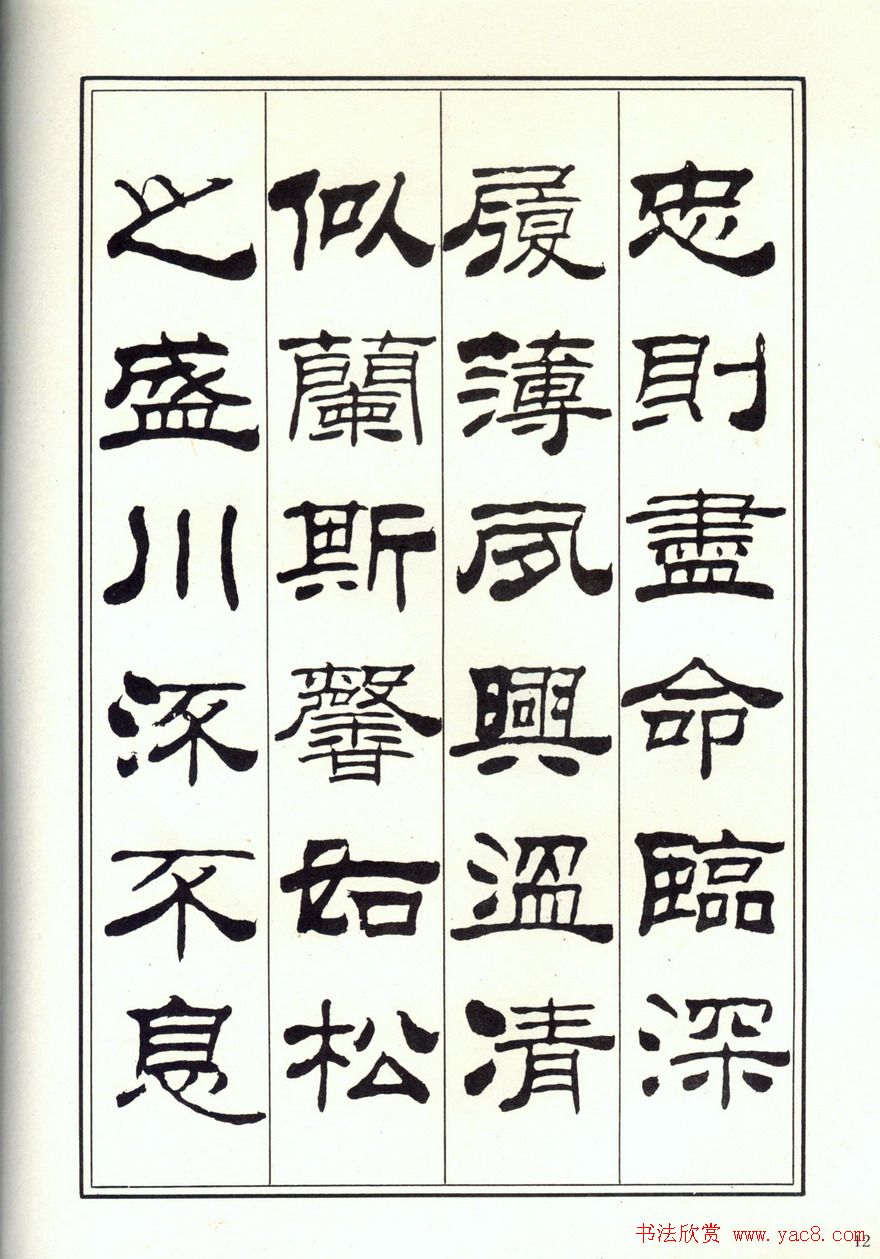 忠則盡命臨深
履薄夙興溫凊
似蘭斯馨如松
之盛川流不息
书法欣赏 www.yac8.com
12